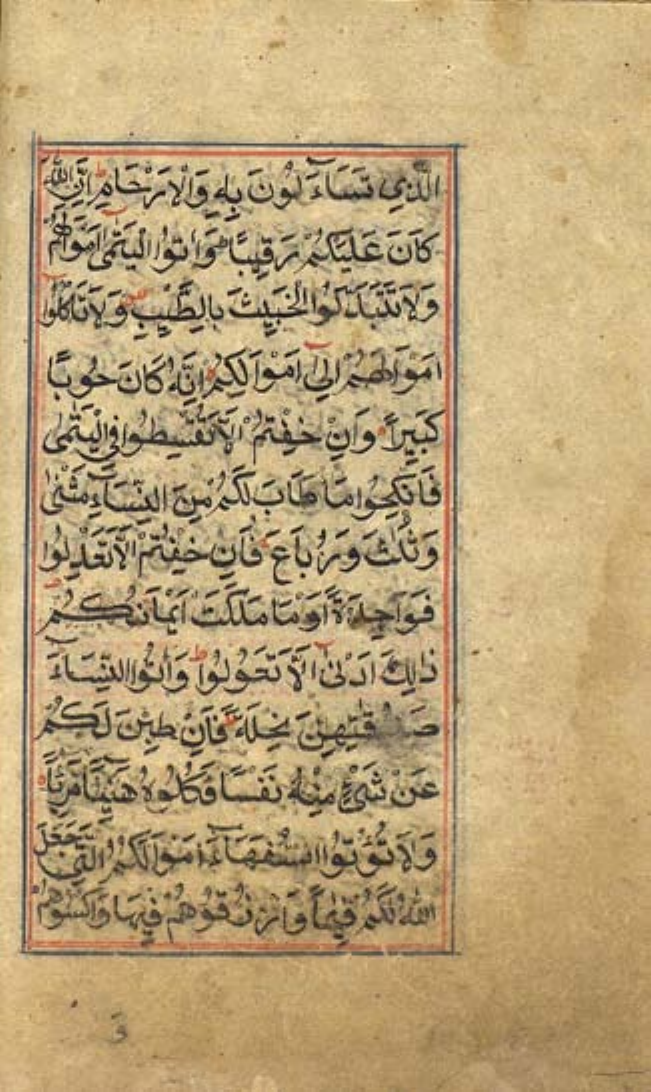 الَّذِي تَسَاءَلُونَ بِهِ وَالْاَرْحَامَ اِنَّ اللّٰهَ
كَانَ عَلَيْكُمْ رَقِيبًا وَاٰتُوا الْيَتٰمٰى اَمْوَالَهُمْ
وَلَا تَتَبَدَّلُوا الْخَبِيثَ بِالطَّيِّبِ وَلَا تَاْكُلُوا
اَمْوَالَهُمْ اِلٰى اَمْوَالِكُمْ اِنَّهُ كَانَ حُوبًا
كَبِيرًا وَاِنْ خِفْتُمْ اَلَّا تُقْسِطُوا فِي الْيَتٰمٰى
فَانْكِحُوا مَا طَابَ لَكُمْ مِنَ النِّسَاءِ مَثْنٰى
وَثُلٰثَ وَرُبَاعَ فَاِنْ خِفْتُمْ اَلَّا تَعْدِلُوا
فَوَاحِدَةً اَوْ مَا مَلَكَتْ اَيْمَانُكُمْ
ذٰلِكَ اَدْنٰى اَلَّا تَعُولُوا وَاٰتُوا النِّسَاءَ
صَدُقٰتِهِنَّ نِحْلَةً فَاِنْ طِبْنَ لَكُمْ
عَنْ شَيْءٍ مِنْهُ نَفْسًا فَكُلُوهُ هَنِيئًا مَرِيئًا
وَلَا تُؤْتُوا السُّفَهَاءَ اَمْوَالَكُمُ الَّتِي جَعَلَ
اللّٰهُ لَكُمْ قِيٰمًا وَارْزُقُوهُمْ فِيهَا وَاكْسُوهُمْ
و